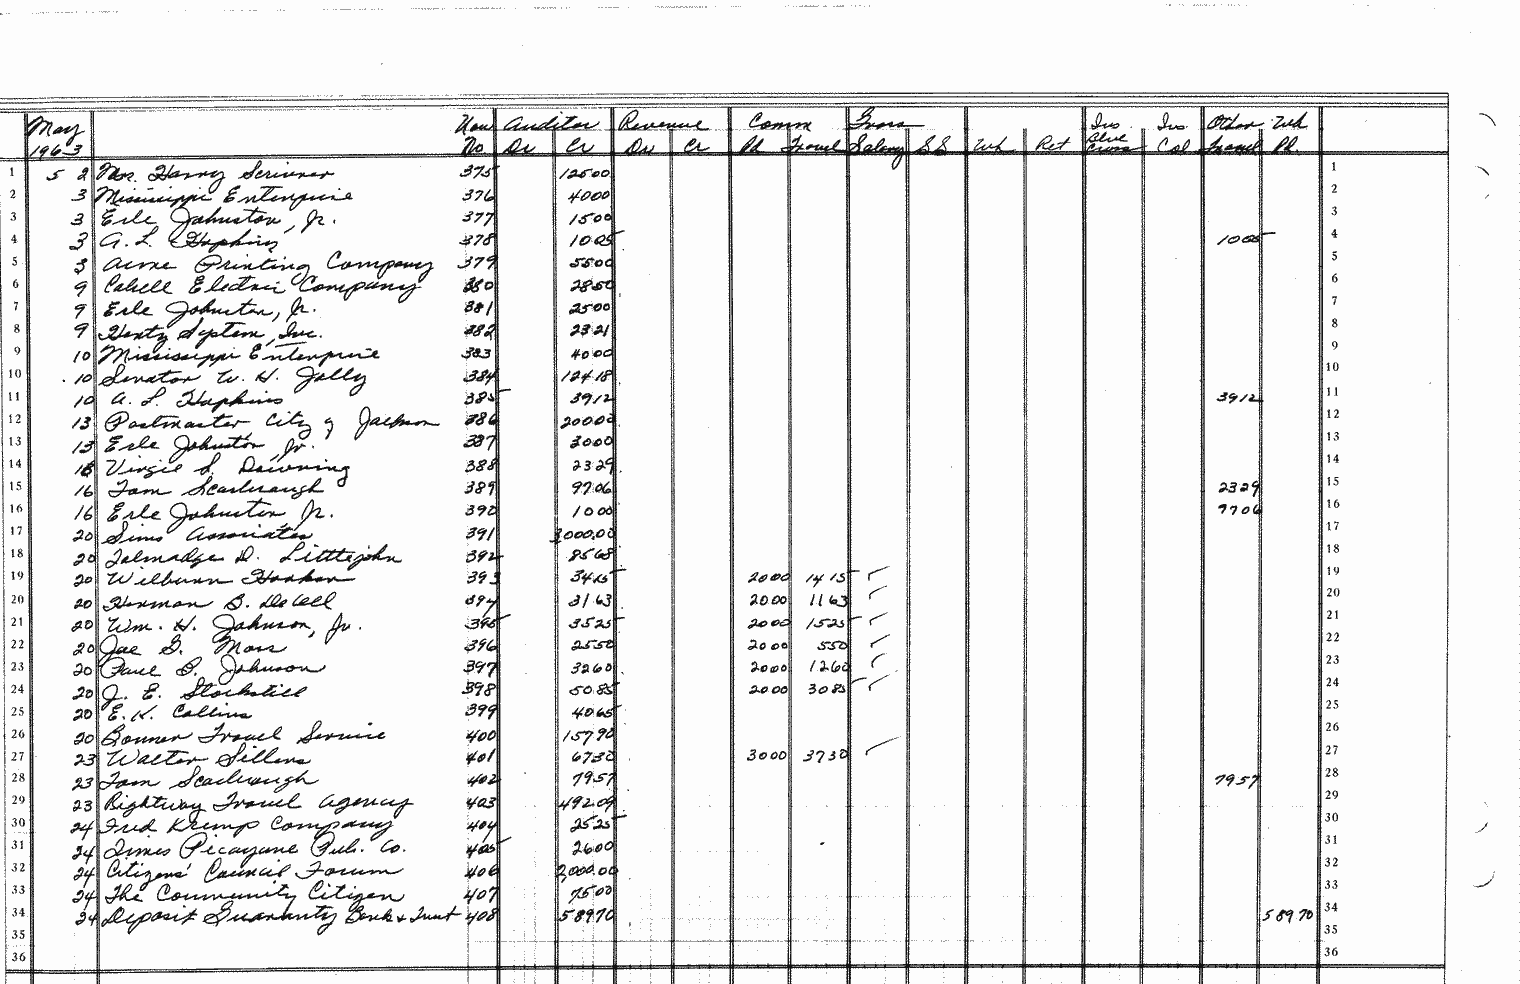 May Vou Auditor Revenue Comm Gross Ins. Ins. Other Wh
1963 No Dr Cr Dr Cr Pd Travel Salary SS Wh Ret Blue Cross Col Travel Pd.
1 5 2 Mrs. Harry Scrivner 375 12500 1
2 3 Mississippi Enterprise 376 4000 2
3 3 Erle Johnston, Jr. 377 1500 3
4 3 A. L. Hopkins 378 1005 1005 4
5 3 Acme Printing Company 379 5500 5
6 9 Cabell Electric Company 380 2850 6
7 9 Erle Johnston, Jr. 381 2500 7
8 9 Hertz System, Inc. 382 2321 8
9 10 Mississippi Enterprise 383 4000 9
10 10 Senator W. H. Jolly 384 12418 10
11 10 A. L. Hopkins 385 3912 3912 11
12 13 Postmaster City of Jackson 386 20000 12
13 13 Erle Johnston, Jr. 387 3000 13
14 16 Virgil S. Downing 388 2329 14
15 16 Tom Scarbrough 389 9706 2329 15
16 16 Erle Johnston Jr. 390 1000 9706 16
17 20 Sims Associates 391 3000.00 17
18 20 Talmadge D. Littlejohn 392 8568 18
19 20 Wilburn Hooker 393 3415 2000 1415 19
20 20 Herman B. DeCell 394 3163 2000 1163 20
21 20 Wm. H. Johnson, Jr. 395 3525 2000 1525 21
22 20 Joe G. Moss 396 2550 2000 550 22
23 20 Paul B. Johnson 397 3260 2000 1260 23
24 20 J. E. Stockstill 398 5085 2000 3085 24
25 20 E. K. Collins 399 4065 25
26 20 Bonner Travel Service 400 15790 26
27 23 Walter Sillers 401 6730 3000 3730 27
28 23 Tom Scarbrough 402 7957 7957 28
29 23 Rightway Travel Agency 403 49209 29
30 24 Fred Kremp Company 404 2525 30
31 24 Times Picayune Pub. Co. 405 2600 31
32 24 Citizens' Council Forum 406 2,000.00 32
33 24 The Community Citizen 407 7500 33
34 24 Deposit Guaranty Bank & Trust 408 58970 58970 34
35 35
36 36